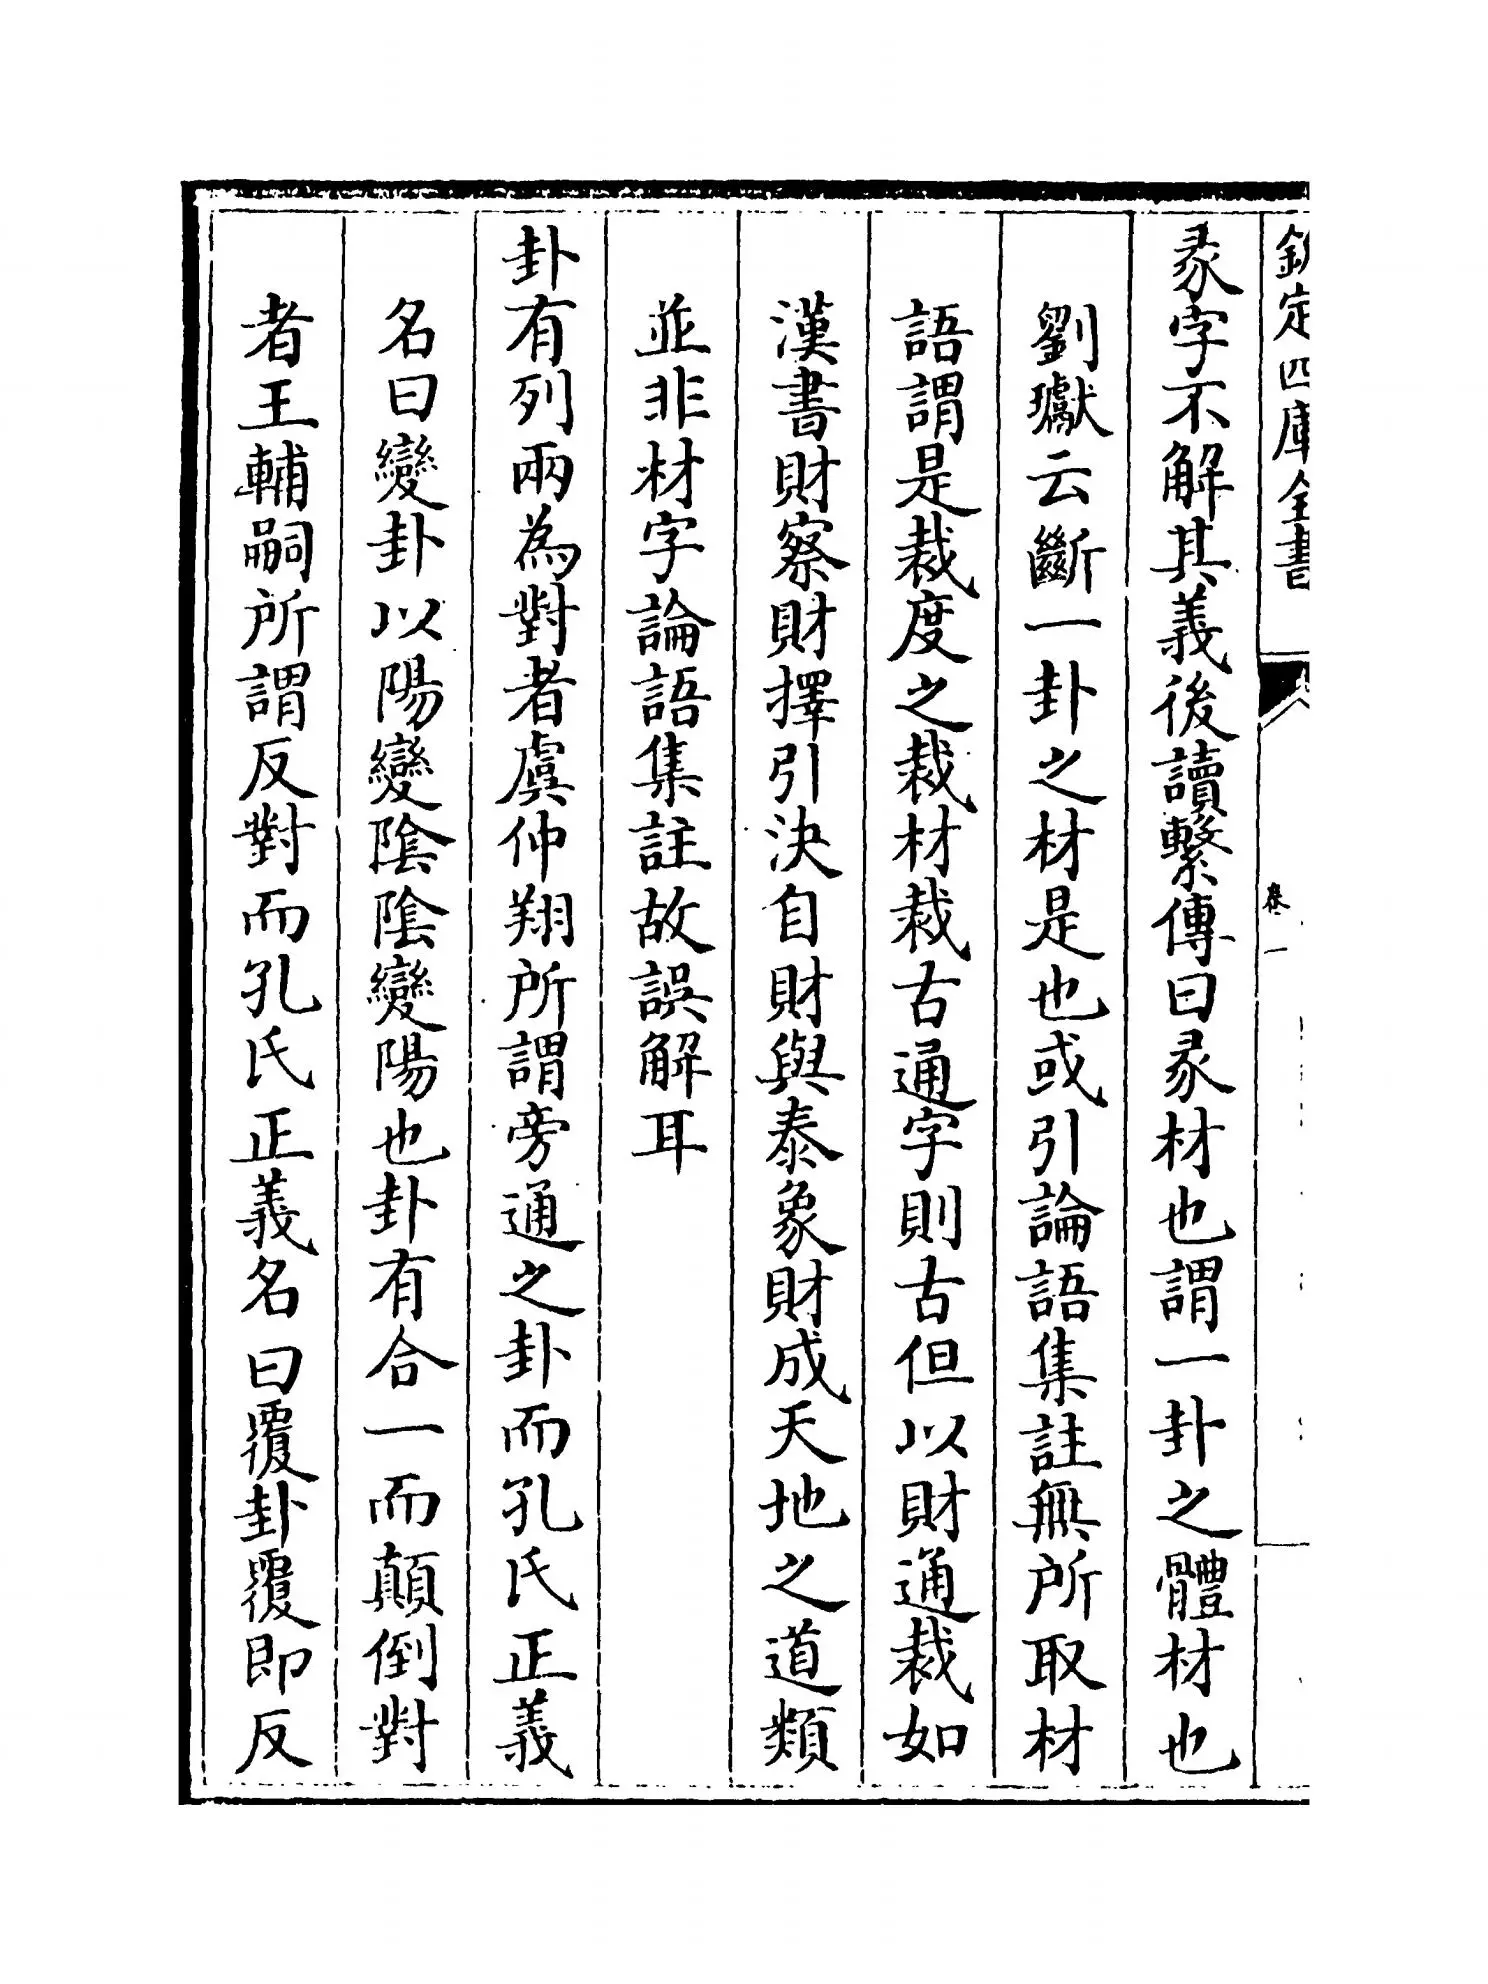 欽定四庫全書
卷一
彖字不解其義後讀繫傳曰彖材也謂一卦之體材也
劉瓛云斷一卦之材是也或引論語集註無所取材
語謂是裁度之裁材裁古通字則古但以財通裁如
漢書財察財擇引決自財與泰象財成天地之道類
並非材字論語集註故誤解耳
卦有列兩為對者虞仲翔所謂旁通之卦而孔氏正義
名曰變卦以陽變陰陰變陽也卦有合一而顛倒對
者王輔嗣所謂反對而孔氏正義名曰覆卦覆即反